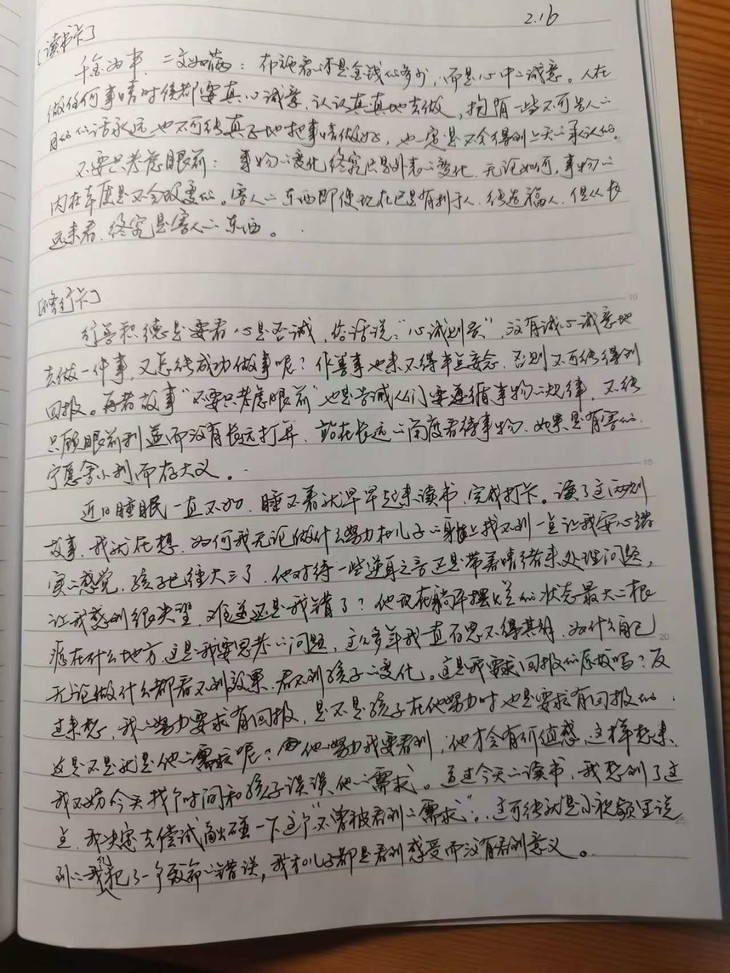 2.16
[读书卡]
千金为轻,二文为满:布施看的不是金钱的多少,而是心中的诚意。人在
做任何事情时候都要真心诚意,认认真真地去做,抱有一些不可告人的
目的的话永远也不可能真正地把事情做好,也一定是不会得到上天的承认的。
不要只考虑眼前:事物的变化终究只是外表的变化,无论如何,事物的
内在本质是不会改变的。害人的东西即使现在已是有利于人,能造福人,但从长
远来看,终究是害人的东西。
[修行卡]
行善积德是要看心是否诚,俗话说:“心诚则灵”,没有诚心诚意地
去做一件事,又怎能成功做事呢?作善事也来不得半点妄念,否则不可能得到
回报。再者故事“不要只考虑眼前”也是告诫人们要遵循事物的规律,不能
只顾眼前利益而没有长远打算,站在长远的角度看待事物,如果是有害的,
宁愿舍小利而存大义。
近日睡眠一直不好,睡不着就早早起来读书,完成打卡。读了这两则
故事,我就在想,为何我无论做什么努力和儿子的身上找不到一点让我安心踏
实的感觉,孩子已经大三了,他对待一些逆耳之言还是带着情绪来处理问题,
让我感到很失望,难道还是我错了?他现在躺平摆烂的状态最大的根
源在什么地方,这是我要思考的问题,这么多年我一直百思不得其解,为什么自己
无论做什么都看不到效果,看不到孩子的变化。这是我要求回报的原故吗?反
过来想,我的努力要求有回报,是不是孩子在他努力时也是要求有回报的,
这是不是就是他的需求呢?他的努力我要看到,他才会有价值感,这样想来,
我不妨今天找个时间和孩子谈谈他的需求。通过今天的读书,我想到了这
点,我决定去尝试触碰一下这个“不曾被看到的需求”,这可能就是小视频里说
到的我犯了一个致命的错误,我和儿子都是看到感受而没有看到意义。